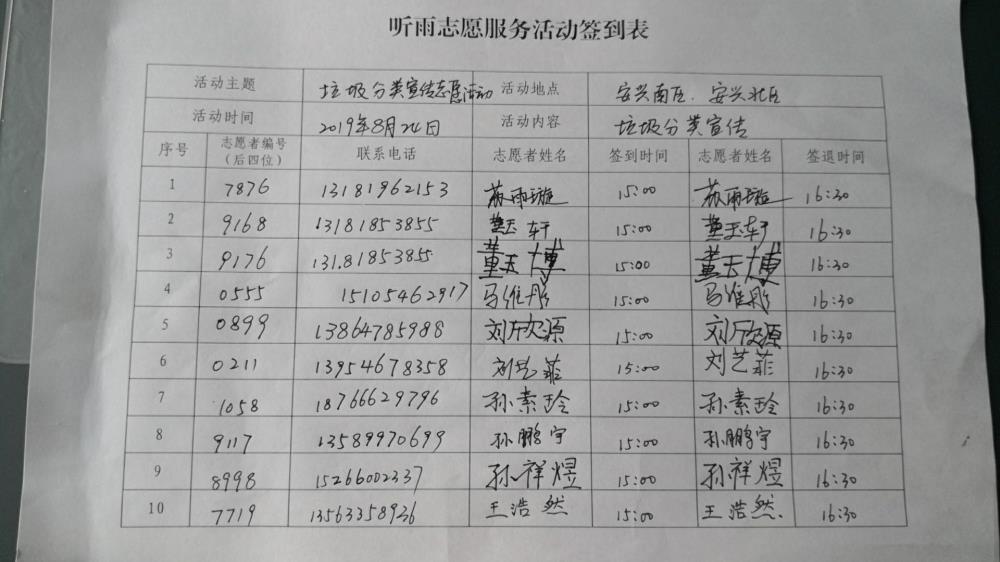 听雨志愿服务活动签到表
活动主题 垃圾分类宣传志愿活动 活动地点 安兴南区、安兴北区
活动时间 2019年8月24日 活动内容 垃圾分类宣传
序号 志愿者编号（后四位） 联系电话 志愿者姓名 签到时间 志愿者姓名 签退时间
1 7876 13181962153 苏雨璇 15:00 苏雨璇 16:30
2 9168 13181853855 董玉轩 15:00 董玉轩 16:30
3 9176 13181853855 董玉博 15:00 董玉博 16:30
4 0555 15105462917 马维彤 15:00 马维彤 16:30
5 0899 13864785988 刘欣源 15:00 刘欣源 16:30
6 0211 13954678358 刘艺菲 15:00 刘艺菲 16:30
7 1058 18766629796 孙素玲 15:00 孙素玲 16:30
8 9117 13589970699 孙鹏宇 15:00 孙鹏宇 16:30
9 8998 15266002337 孙祥煜 15:00 孙祥煜 16:30
10 7719 13563358926 王浩然 15:00 王浩然 16:30